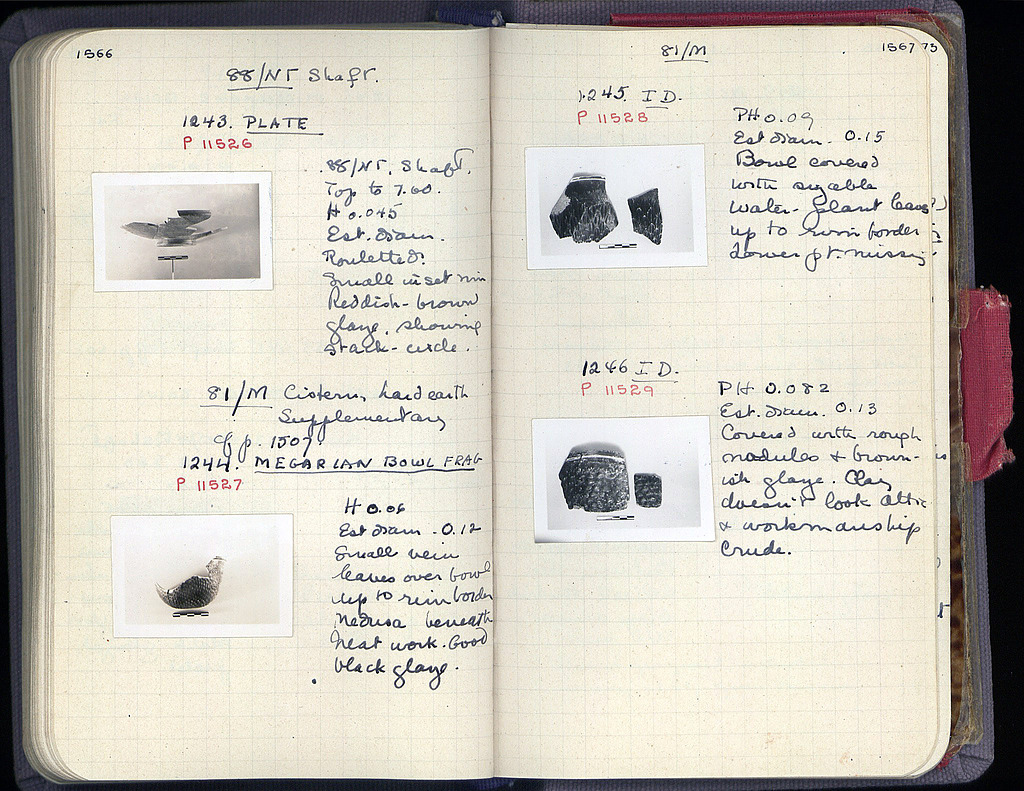 1566
88/NT Shaft.
1243. PLATE
P 11526
88/NT. Shaft.
Top to 7.60.
H 0.045
Est. diam.
Rouletted.
Small inset rim
Reddish-brown
glaze, showing
stack-circle.
81/M Cistern, hard earth
Supplementary
cf p. 1507.
1244. MEGARIAN BOWL FRAG
P 11527
H 0.06
Est diam. 0.12
Small vein
leaves over bowl
up to rim border
Medusa beneath
Neat work. Good
black glaze.
81/M
1567 73
1245. ID.
P 11528
PH 0.09
Est diam. 0.15
Bowl covered
with sizable
water-plant leaves
up to rim border
Lower pt. missing
1246 ID.
P 11529
PH 0.082
Est. diam. 0.13
Covered with rough
nodules & brown-
ish glaze. Clay
doesn't look Attic
& workmanship
crude.